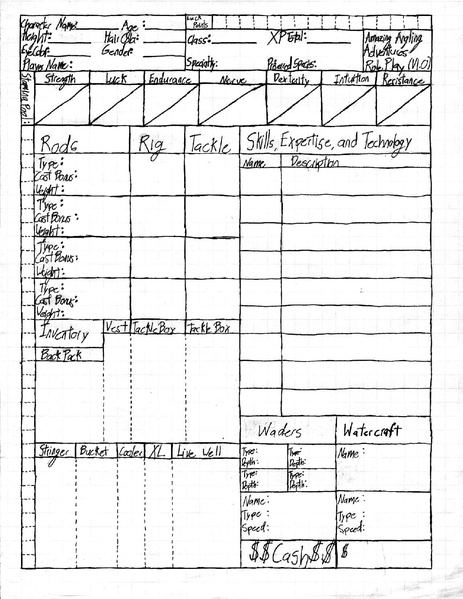 Character Name: Age: Luck Points
Height: Hair Color: Class: XP Total: Amazing Angling
Eye Color: Gender: Adventures
Player Name: Specialty: Preferred Species: Role Play (V1.0)
Strength Luck Endurance Nerve Dexterity Intuition Resistance
Rods Rig Tackle Skills, Expertise, and Technology
Type: Name Description
Cast Bonus:
Weight:
Type:
Cast Bonus:
Weight:
Type:
Cast Bonus:
Weight:
Type:
Cast Bonus:
Weight:
Inventory Vest Tackle Box Tackle Box
Back Pack
Waders Watercraft
Stringer Bucket Cooler XL Live Well
Type: Type: Name:
Depth: Depth:
Type: Type:
Depth: Depth:
Name: Name:
Type: Type:
Speed: Speed:
$$Cash$$ $